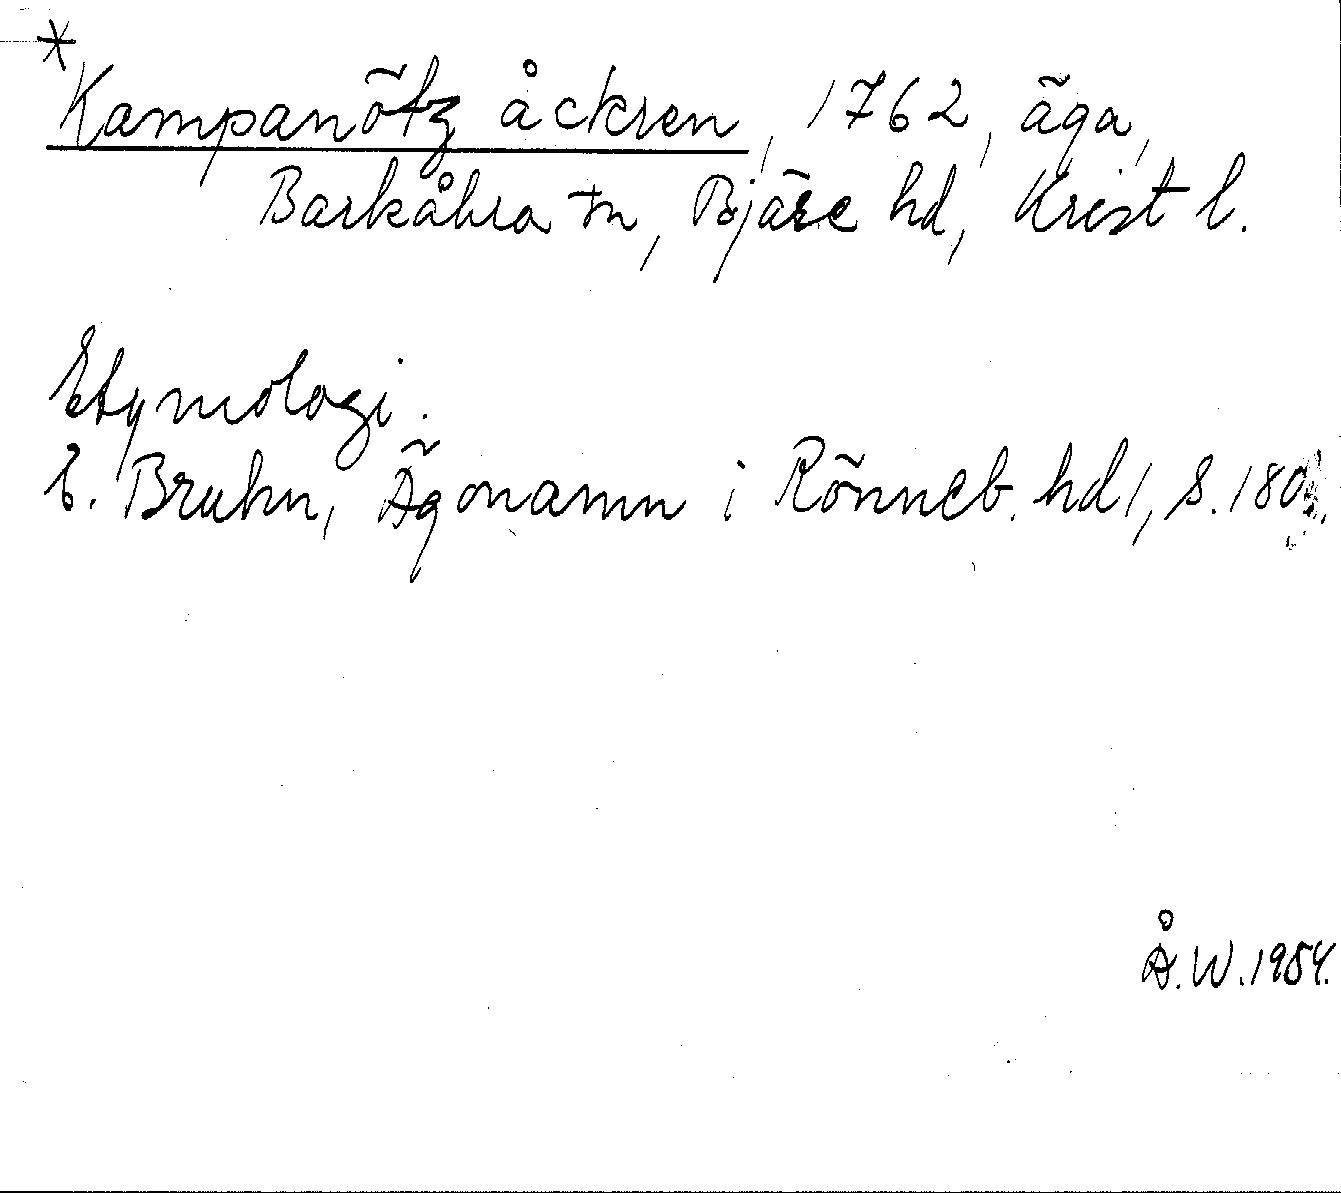 *
Kampanötz åckren, 1762, äga,
Barkåkra sn, Bjäre hd, Krist l.
Etymologi.
E. Bruhn, Ägonamn i Rönneb. hd 1, s. 180.
Å.W. 1954.